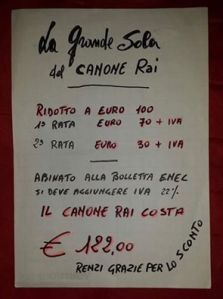 La Grande Sola
del CANONE Rai
RIDOTTO A EURO 100
1ª RATA EURO 70 + IVA
2ª RATA EURO 30 + IVA
ABINATO ALLA BOLLETTA ENEL
SI DEVE AGGIUNGERE IVA 22%
IL CANONE RAI COSTA
€ 122,00
RENZI GRAZIE PER LO SCONTO